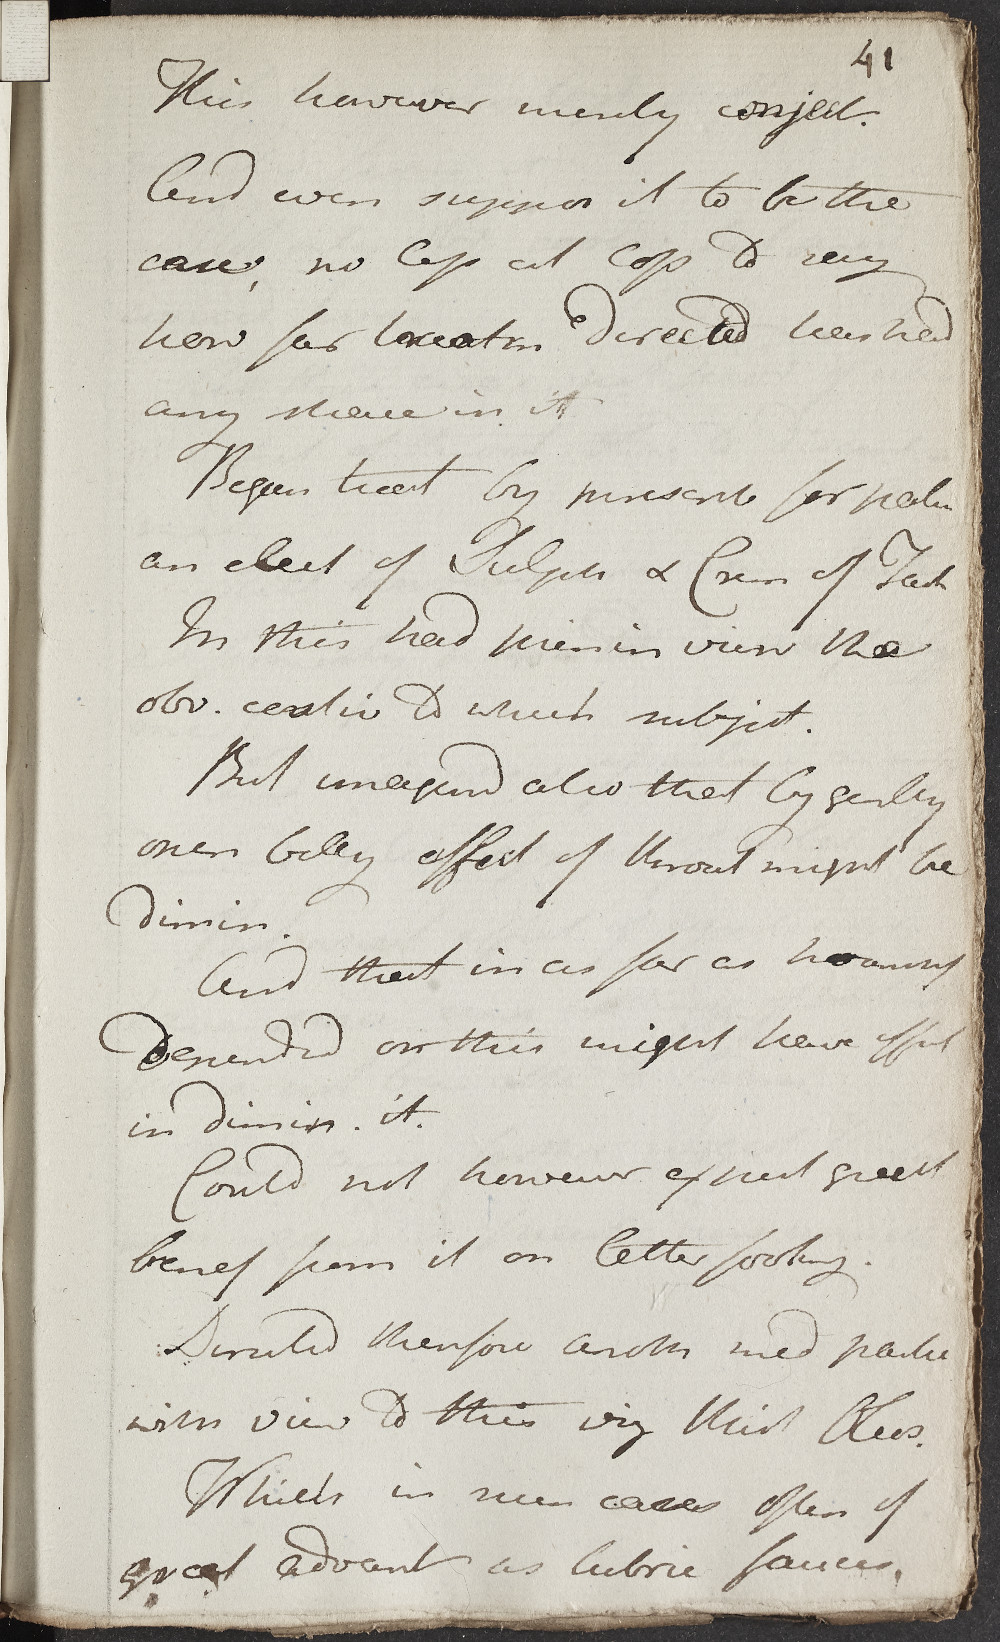 41
This however merely conject.
And even suppos it to be the
case, no Cap at Cop to say
how far treatm directed has had
any share in it
Began treat by prescrib for patien
an elect of Sulph & Crem of Tart
In this had princin view the
obv. costiv to which subject.
But imagind also that by gently
open belly affect of throat might be
dimin.
And that in as far as hoarsns
Depended on this might have effect
in dimin. it.
Could not however expect great
benef from it on latter footing.
Directed therfore anoth med partic
with view to this viz this Oleos.
Which in such cases often of
great advant as lubric fauces.